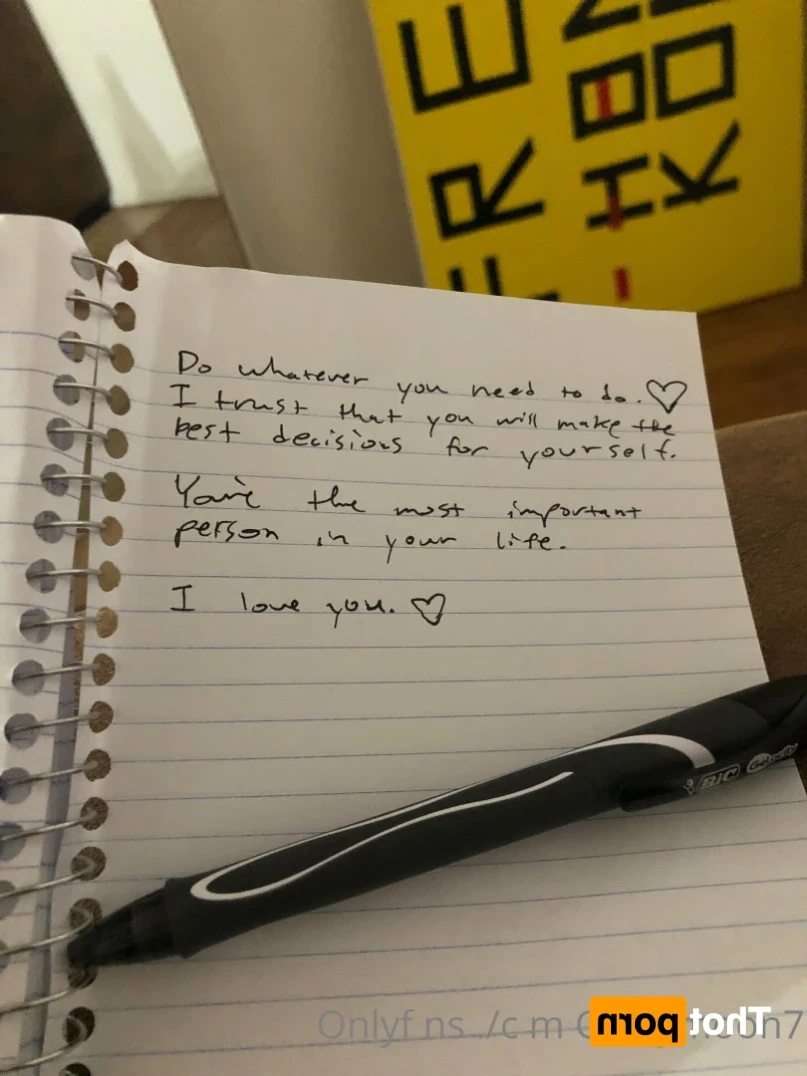 Do whatever you need to do. ♡
I trust that you will make the
best decisions for yourself.
You're the most important
person in your life.
I love you. ♡
BIC Gel-ocity
Thot porn